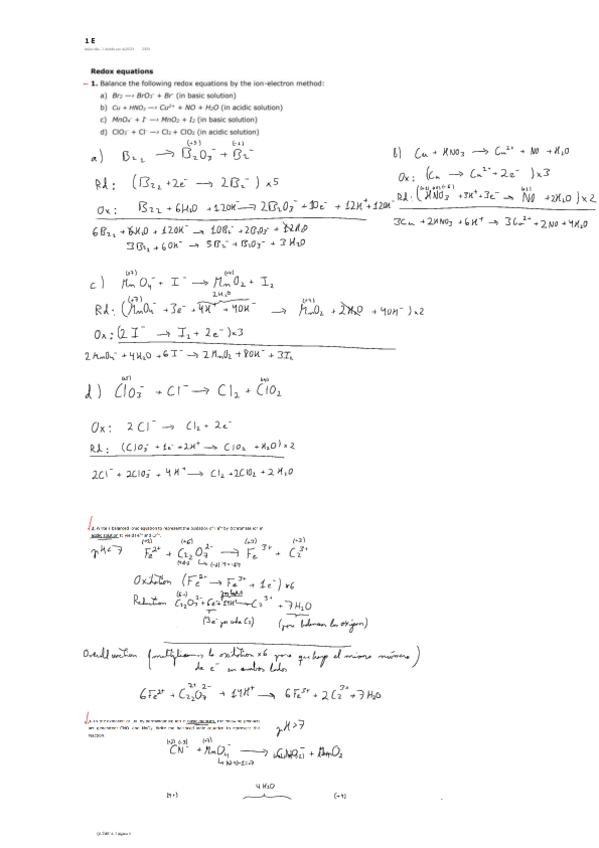 1 E
Redox equations
1. Balance the following redox equations by the ion-electron method:
a) Br₂ —› BrO₃⁻ + Br⁻ (in basic solution)
b) Cu + HNO₃ —› Cu²⁺ + NO + H₂O (in acidic solution)
c) MnO₄⁻ + I⁻ —› MnO₂ + I₂ (in basic solution)
d) ClO₃⁻ + Cl⁻ —› Cl₂ + ClO₂ (in acidic solution)
a) Br₂ → BrO₃⁻ + Br⁻
Rd: (Br₂ + 2e⁻ → 2Br⁻) x5
Ox: Br₂ + 6H₂O + 12OH⁻ → 2BrO₃⁻ + 10e⁻ + 12H⁺ + 12OH⁻
6Br₂ + 6H₂O + 12OH⁻ → 10Br⁻ + 2BrO₃⁻ + 12H₂O
3Br₂ + 6OH⁻ → 5Br⁻ + BrO₃⁻ + 3H₂O
b) Cu + HNO₃ → Cu²⁺ + NO + H₂O
Ox: (Cu → Cu²⁺ + 2e⁻) x3
Rd: (HNO₃ + 3H⁺ + 3e⁻ → NO + 2H₂O) x2
3Cu + 2HNO₃ + 6H⁺ → 3Cu²⁺ + 2NO + 4H₂O
c) MnO₄⁻ + I⁻ → MnO₂ + I₂
2H₂O
Rd: (MnO₄⁻ + 3e⁻ + 4H⁺ + 4OH⁻ → MnO₂ + 2H₂O + 4OH⁻) x2
Ox: (2I⁻ → I₂ + 2e⁻) x3
2MnO₄⁻ + 4H₂O + 6I⁻ → 2MnO₂ + 8OH⁻ + 3I₂
d) ClO₃⁻ + Cl⁻ → Cl₂ + ClO₂
Ox: 2Cl⁻ → Cl₂ + 2e⁻
Rd: (ClO₃⁻ + 1e⁻ + 2H⁺ → ClO₂ + H₂O) x2
2Cl⁻ + 2ClO₃⁻ + 4H⁺ → Cl₂ + 2ClO₂ + 2H₂O
pH<7 Fe²⁺ + Cr₂O₇²⁻ → Fe³⁺ + Cr³⁺
Oxidation (Fe²⁺ → Fe³⁺ + 1e⁻) x6
Reduction Cr₂O₇²⁻ + 6e⁻ + 14H⁺ → Cr³⁺ + 7H₂O
(3e⁻ por cada Cr) (para balancear los oxígenos)
Overall reaction (multiplicamos la oxidation x6 para que haya el mismo número)
de e⁻ en ambos lados
6Fe²⁺ + Cr₂O₇²⁻ + 14H⁺ → 6Fe³⁺ + 2Cr³⁺ + 7H₂O
pH>7
CN⁻ + MnO₄⁻ → CNO⁻ + MnO₂
4H₂O